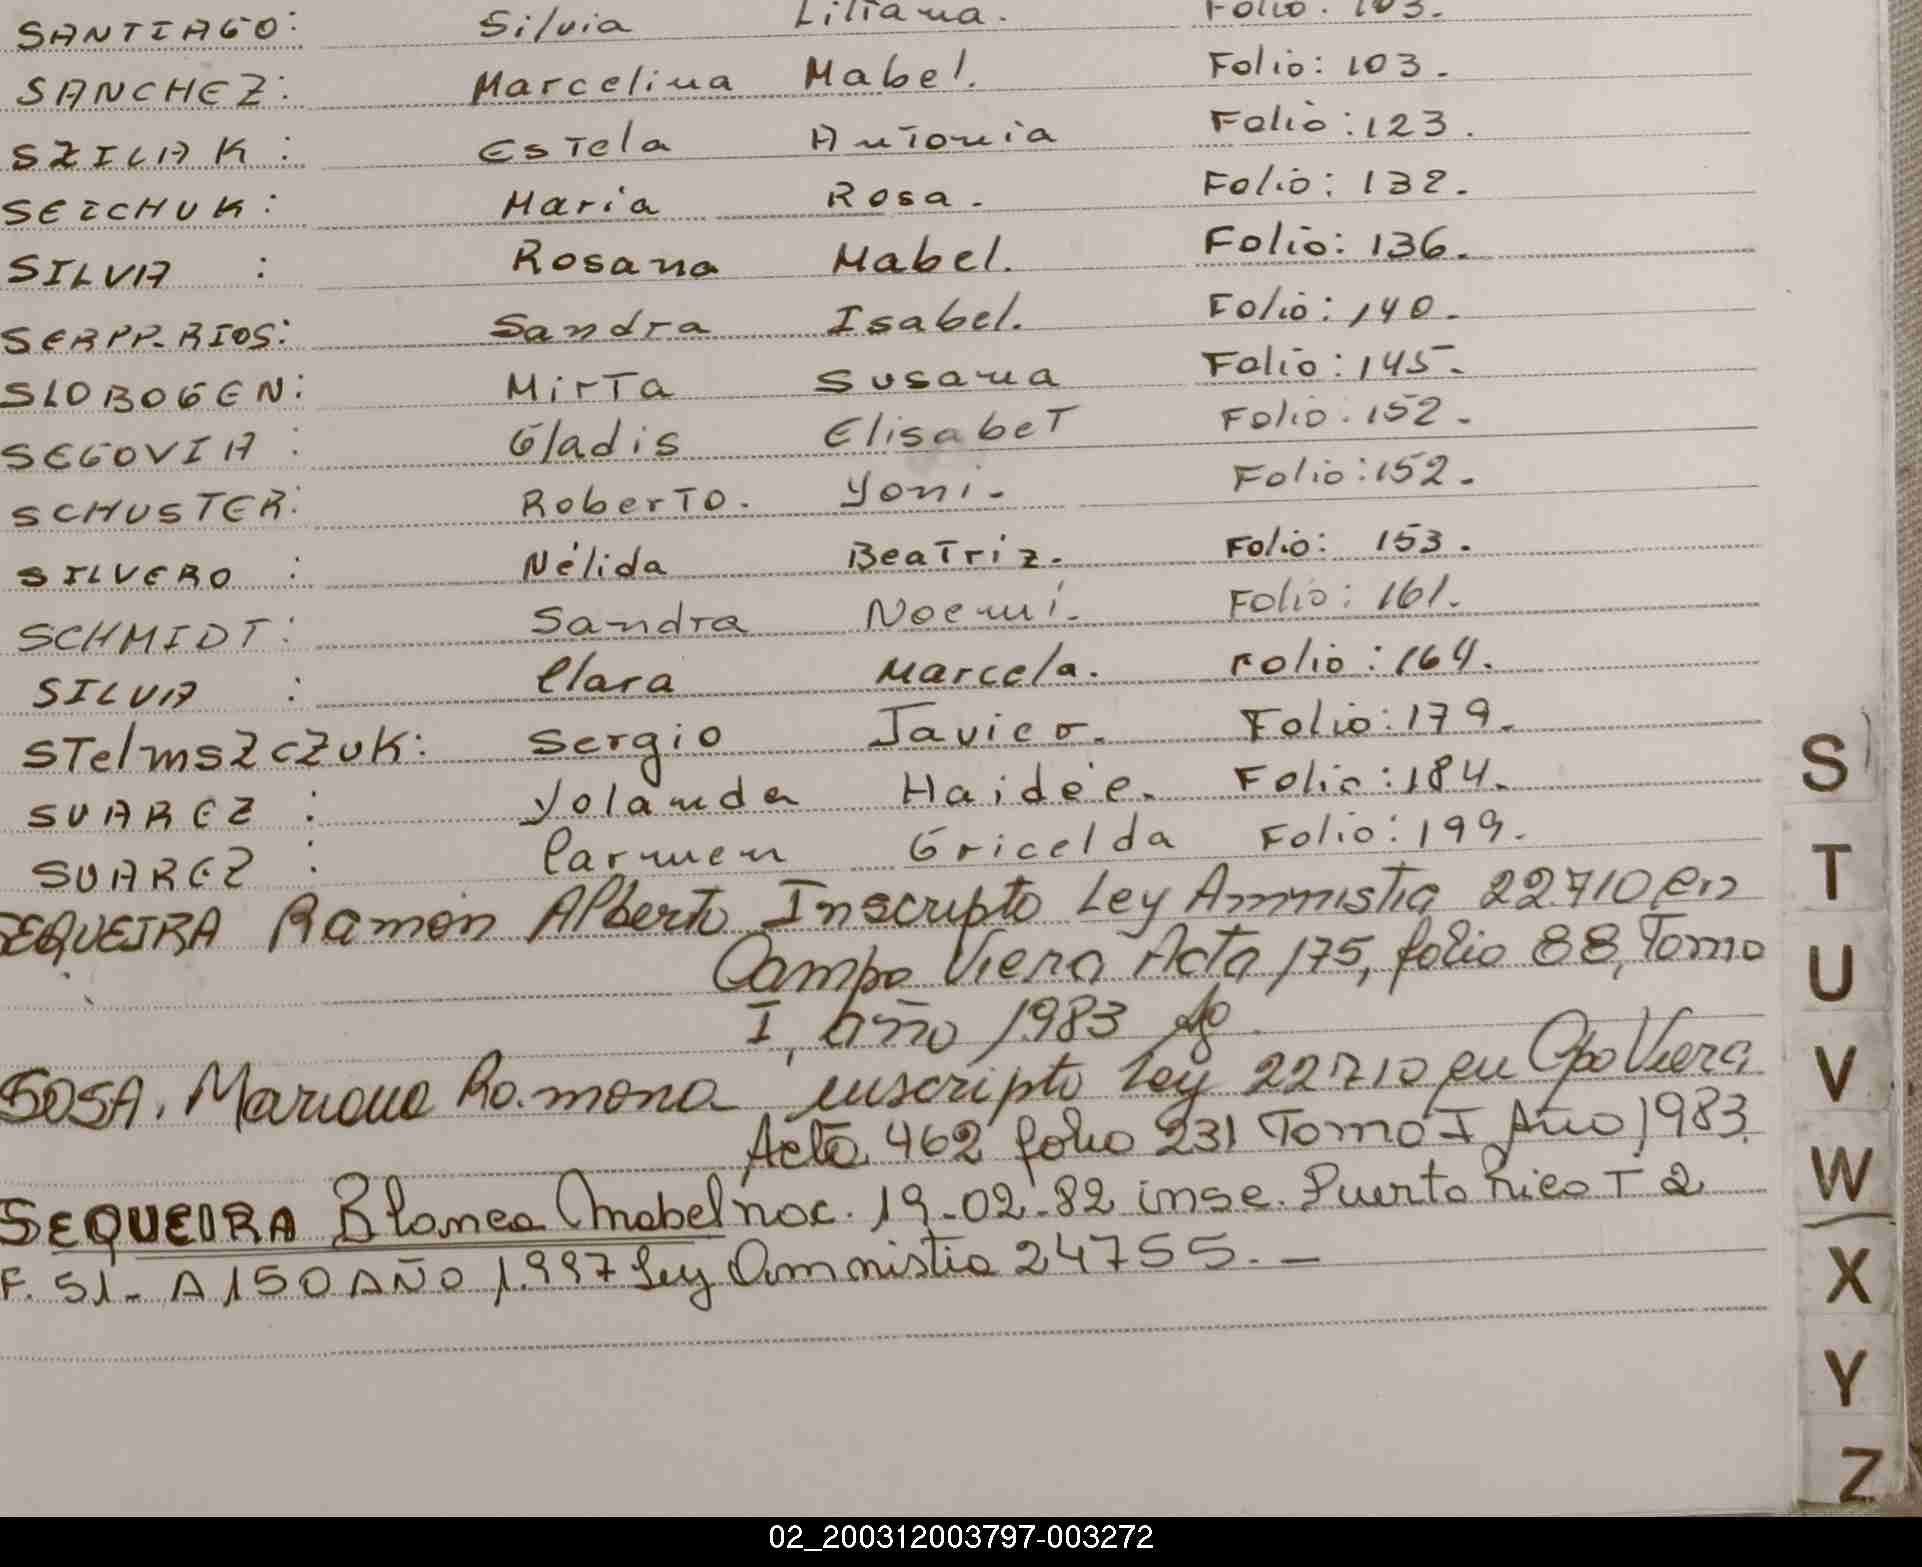 SANTIAGO: Silvia Liliana. Folio: 103.
SANCHEZ: Marcelina Mabel. Folio: 103.
SZILAK: Estela Antonia Folio: 123.
SEICHUK: Maria Rosa. Folio: 132.
SILVA : Rosana Mabel. Folio: 136.
SERPP-RIOS: Sandra Isabel. Folio: 140.
SLOBOGEN: Mirta Susana Folio: 145.
SEGOVIA : Gladis Elisabet Folio: 152.
SCHUSTER: Roberto. Yoni. Folio: 152.
SILVERO : Nélida Beatriz. Folio: 153.
SCHMIDT: Sandra Noemí. Folio: 161.
SILVA : Clara Marcela. Folio: 164.
STelmsZcZuK: Sergio Javier. Folio: 179.
SUAREZ : Yolanda Haidée. Folio: 184.
SUAREZ : Carmen Gricelda Folio: 199.
SEQUEIRA Ramón Alberto Inscripto Ley Ammistia 22710 en
Campo Viera Acta 175, folio 88, Tomo
I, año 1983
SOSA, Mariana Ramona inscripto Ley 22710 en Cpo Viera
Acta 462 folio 231 Tomo I Año 1983.
SEQUEIRA Blanca Mabel nac. 19-02-82 insc. Puerto Rico T 2
F. 51- A 150 AÑO 1.997 Ley Amnistia 24755.-
S
T
U
V
W
X
Y
Z
02_200312003797-003272